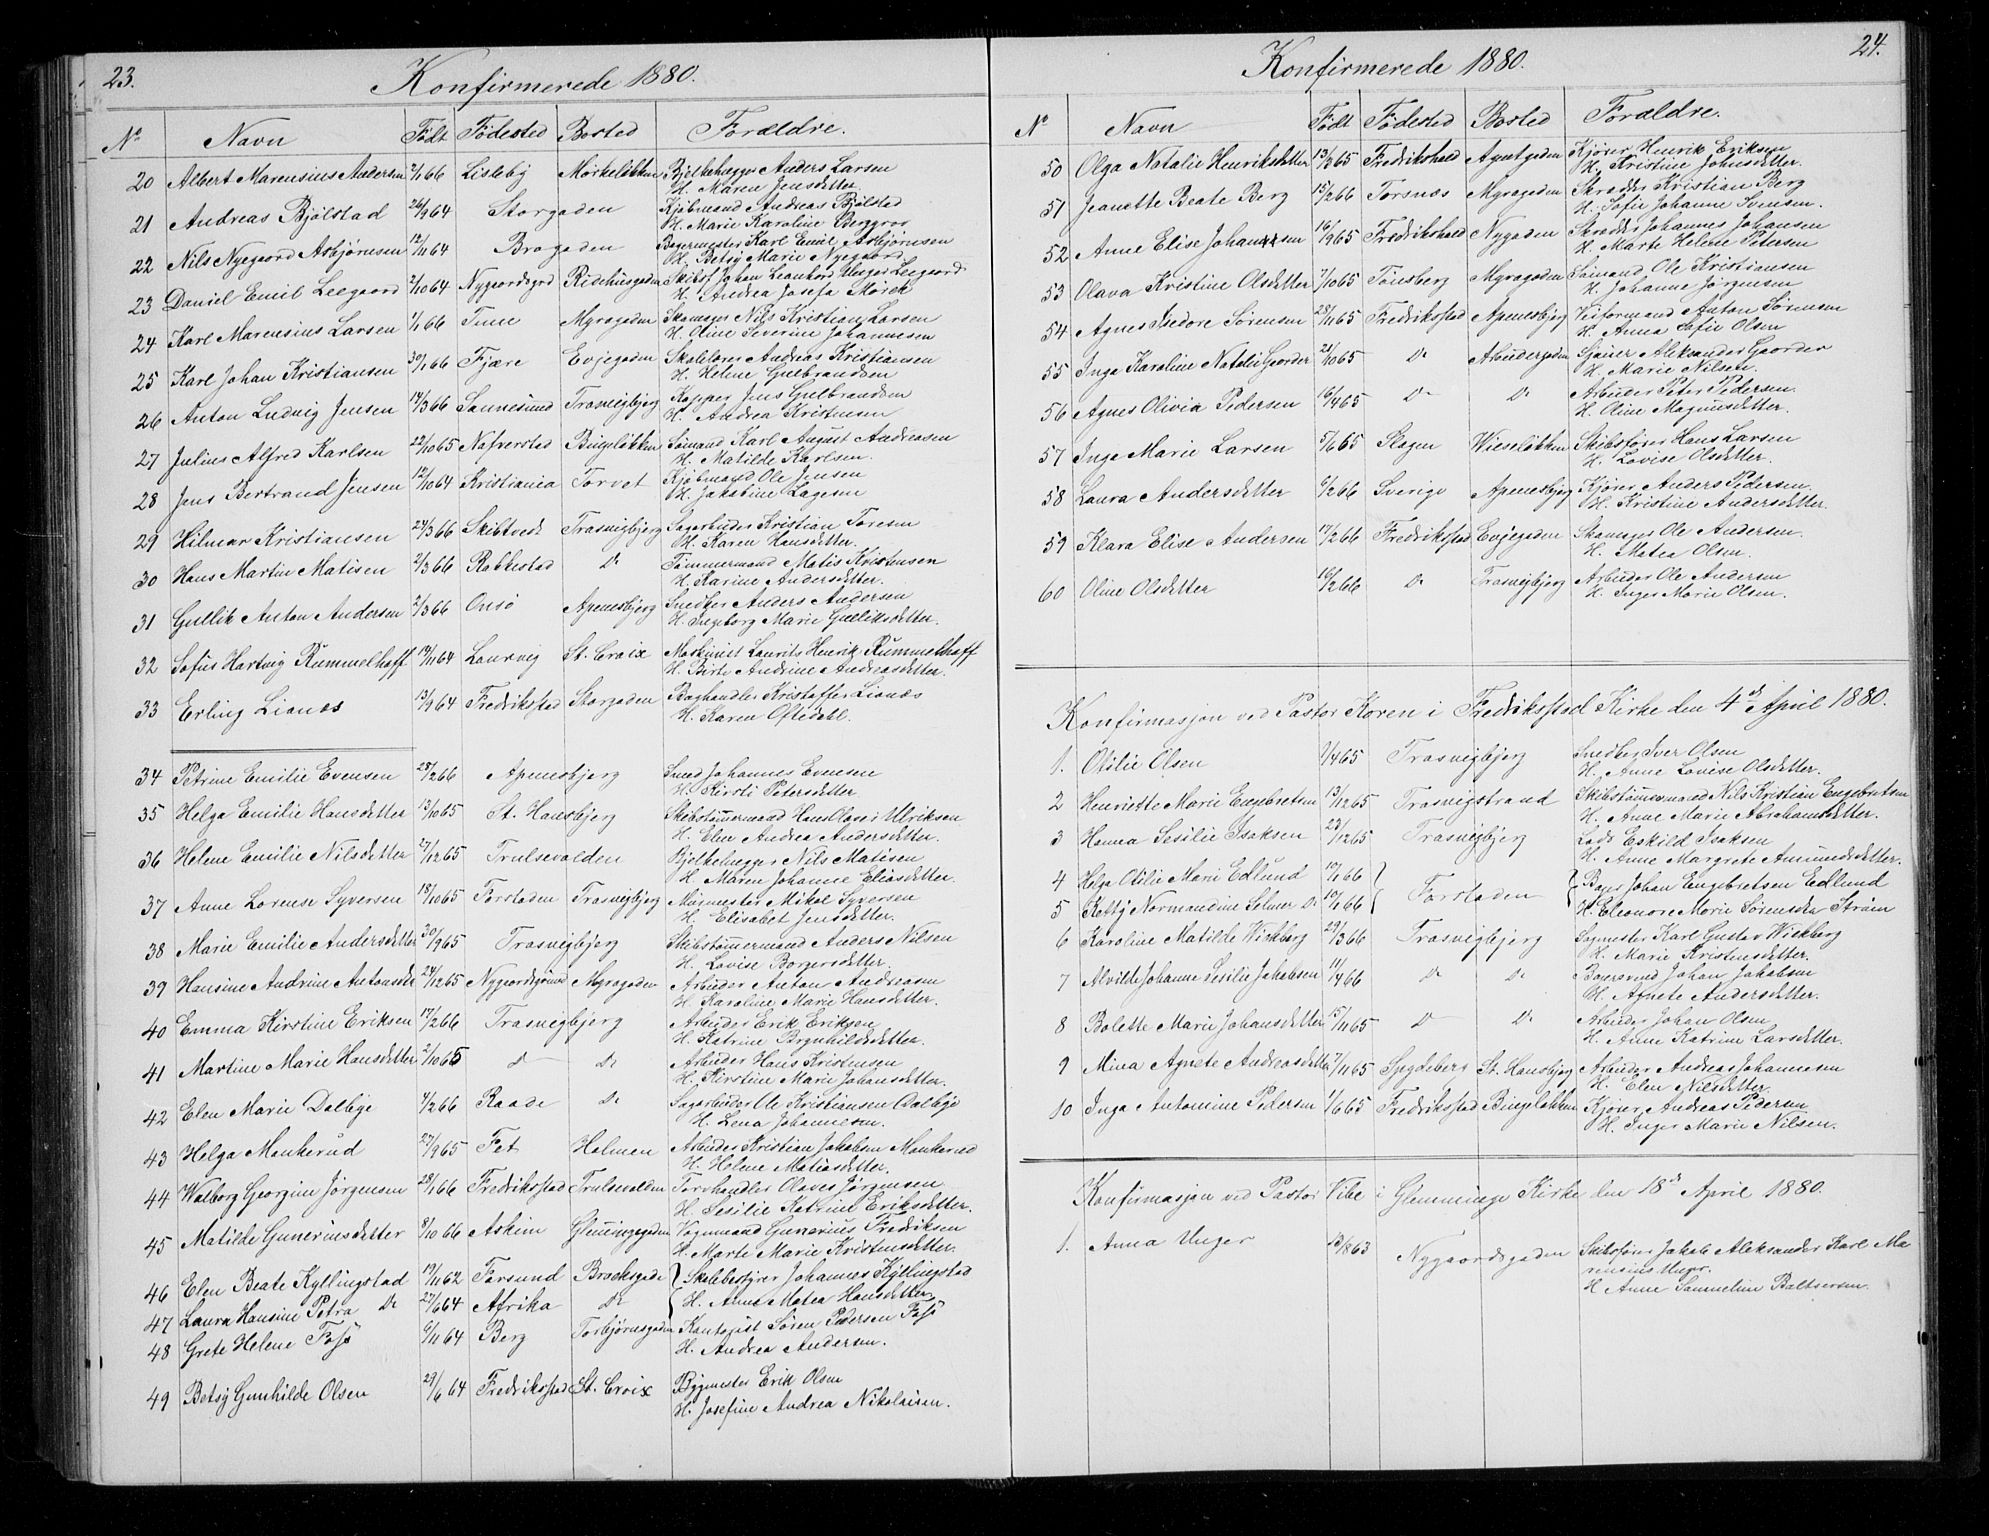 23.
Konfirmerede 1880.
No Navn Födt Födested Bosted Forældre.
20 Albert Marensius Andersen 2/1 66 Lisleby Mörkelökken Bjelkehugger Anders Larsen
H. Maren Jensdatter
21 Andreas Bjölstad 26/9 64 Storgaden Kjöbmand Andreas Bjölstad
H. Marie Karoline Berggrov
22 Nils Nygaard Asbjörnsen 12/11 64 Brogaden Bagermester Karl Emil Asbjörnsen
H. Betsy Marie Nygaard
23 Daniel Emil Leegaard 2/10 64 Nygaardsgrd Ridehusgaden Skibsf. Johan Leonhard Unger Leegaard
H. Andrea Josefa Mörck
24 Karl Marensius Larsen 1/1 66 Tune Myragaden Skomager Nils Kristian Larsen
H. Oline Severine Johannesen
25 Karl Johan Kristiansen 30/1 66 Fjære Evjegaden Skolelærer Andreas Kristiansen
H. Helene Gulbrandsen
26 Anton Ludvig Jensen 14/3 66 Sannesund Trasvigbjerg Kopper Jens Gulbrandsen
H. Andrea Kristensen
27 Julius Alfred Karlsen 22/10 65 Nafverstad Bingelökken Sömand Karl August Andreasen
H. Matilde Karlsen.
28 Jens Bertrand Jensen 12/10 64 Kristiania Torvet Kjöbmand Ole Jensen
H. Jakobine Lagesen
29 Hilmar Kristiansen 24/3 66 Skibtvedt Trasvigbjerg Sagarbeider Kristian Toresen
H. Karen Hansdatter.
30 Hans Martin Matisen 2/3 66 Rakkestad Do Tömmermand Matis Kristensen
H. Karine Andersdatter.
31 Gullik Anton Andersen 2/3 66 Onsö Apenesbjerg Snedker Anders Andersen
H. Ingeborg Marie Gulliksdatter.
32 Sofus Hartvig Rummelhoff 19/11 64 Laurvig St. Croix Maskinist Laurits Henrik Rummelhoff
H. Birte Andrine Andreasdatter.
33 Erling Lianæs 13/9 64 Fredriksstad Storgaden Boghandler Kristoffer Lianæs
H. Karen Oftedahl.
34 Petrine Emilie Evensen 25/2 66 Apenesbjerg Smed Johannes Evensen
H. Kirsti Petersdatter
35 Helga Emilie Hansdatter 13/10 65 St. Hansbjerg Skibstömmermand Hans Olavi Ulriksen
H. Elen Andrea Andersdatter.
36 Helene Emilie Nilsdatter 27/12 65 Trulsevolden Bjelkehugger Nils Matisen
H. Maren Johanne Eliasdatter.
37 Anne Lorense Syversen 18/10 65 Forstaden Trasvigbjerg Murmester Mikal Syversen
H. Elisabet Jensdatter.
38 Marie Emilie Andersdatter 30/9 65 Trasvigbjerg Skibstömmermand Anders Nilsen
H. Lovise Borgersdatter.
39 Hansine Andrine Antonsdtr 24/12 65 Nygaardsgrund Myragaden Arbeider Anton Andreasen
H. Karoline Marie Hansdatter.
40 Emma Kirstine Eriksen 17/2 66 Trasvigbjerg Arbeider Erik Eriksen
H. Katrine Brynhildsdatter.
41 Martine Marie Hansdatter 2/10 65 Do Do Arbeider Hans Kristensen
H. Kirstine Marie Johansdatter.
42 Elen Marie Dalbye 4/2 66 Raade Do Sagarbeider Ole Kristiansen Dalbye
H. Lena Johannesen.
43 Helga Monkerud 27/9 65 Fet Holmen Arbeider Kristian Jakobsen Monkerud
H. Helene Matiasdatter.
44 Walborg Georgine Jörgensen 28/1 66 Fredriksstad Trulsevolden Torvhandler Olaves Jörgensen
H. Sesilie Katrine Eriksdatter.
45 Matilde Guneriusdatter 8/10 66 Askim Glemmingegaden Vognmand Gunerius Fredriksen
H. Marte Marie Kristensdatter.
46 Elen Beate Kyllingstad 19/11 62 Farsund Brocksgade Skolebestyrer Johannes Kyllingstad
47 Laura Hansine Petra Do 27/6 64 Afrika Do H. Anne Matea Hansdatter
48 Grete Helene Fosö 6/11 64 Berg Torbjörnsgaden Kontorist Sören Pedersen Fosö
H. Andrea Andersen.
49 Betsy Gunhilde Olsen 29/6 64 Fredriksstad St. Croix Bygmester Erik Olsen
H. Josefine Andrea Nikolaisen.
24.
Konfirmerede 1880.
No Navn Födt Födested Bosted Forældre.
50 Olga Natalie Henriksdatter 13/3 65 Fredrikshald Agentgaden Kjörer Henrik Eriksen
H. Kristine Johnsdatter.
51 Jeanette Beate Berg 15/2 66 Torsnæs Myragaden Skrædder Kristian Berg
H. Sofie Johanne Svensen.
52 Anne Elise Johansen 16/9 65 Fredrikshald Nygaden Skrædder Johannes Johansen
H. Marte Helene Petersen
53 Olava Kristine Olsdatter 7/10 65 Tönsberg Myragaden Sömand Ole Kristiansen
H. Johanne Jörgensen
54 Agnes Isedore Sörensen 28/11 65 Fredriksstad Apenesbjerg Anton Sörensen
H. Anna Sofie Olsen
55 Inga Karoline Natalie Gaarder 21/10 65 Do Gaarder
H. Marie Nilsen.
56 Agnes Olivia Pedersen 16/4 65 Do Do Arbeider Peter Pedersen.
H. Oline Magnusdatter.
57 Inga Marie Larsen 5/6 65 Slagen Wieselökken Skibsförer Hans Larsen
H. Lovise Olsdatter.
58 Laura Andersdatter 6/2 66 Sverige Apenesbjerg Kjörer Anders Pedersen.
H. Kristine Andersdatter.
59 Klara Elise Andersen 17/2 66 Fredriksstad Evjegaden Skomager Ole Andersen.
H. Matea Olsen.
60 Oline Olsdatter 16/2 66 Do Trasvigbjerg Arbeider Ole Andersen
H. Inger Marie Olsen.
Konfirmasjon ved Pastor Koren i Fredriksstad Kirke den 4de April 1880.
1. Otilie Olsen 9/4 65 Trasvigbjerg Snedker Iver Olsen
H. Anne Lovise Olsdatter.
2 Henriette Marie Engebretsen 13/12 65 Trasvigstrand Skibstömmermand Nils Kristian Engebretsen
H. Anne Marie Abrahamsdatter.
3 Hanna Sesilie Isaksen 23/12 65 Trasvigbjerg Lods Eskild Isaksen
H. Anne Margrete Amundsdatter.
4 Helga Otilie Marie Edlund 10/1 66 Forstaden Bager Johan Engebretsen Edlund
5 Ketty Normandine Selmer Do 10/1 66 H. Eleonore Marie Sörensdtr Ström
6 Karoline Matilde Wickberg 29/3 66 Trasvigbjerg Sagmester Karl Gustav Wickberg
H. Marie Kristensdatter.
7 Alvilde Johanne Sesilie Jakobsen 11/4 66 Do Do Johan Jakobsen
H. Agnete Andersdatter.
8 Bolette Marie Johansdatter 15/11 65 Do Do Arbeider Johan Olsen
H. Anne Katrine Larsdatter.
9 Mina Agnete Andreasdatter 7/11 65 Spydeberg St. Hansbjerg Arbeider Andreas Johannesen
H. Elen Nilsdatter.
10 Inga Antomine Pedersen 1/6 65 Fredriksstad Bingelökken Kjörer Andreas Pedersen
H. Inger Marie Nilsen.
Konfirmasjon ved Pastor Vibe i Glemminge Kirke den 18de April 1880.
1. Anna Unger 13/8 63 Nygaardsgaden Skibsförer Jakob Aleksander Karl Ma
rensius Unger.
H. Anne Sammeline Baltsersen.